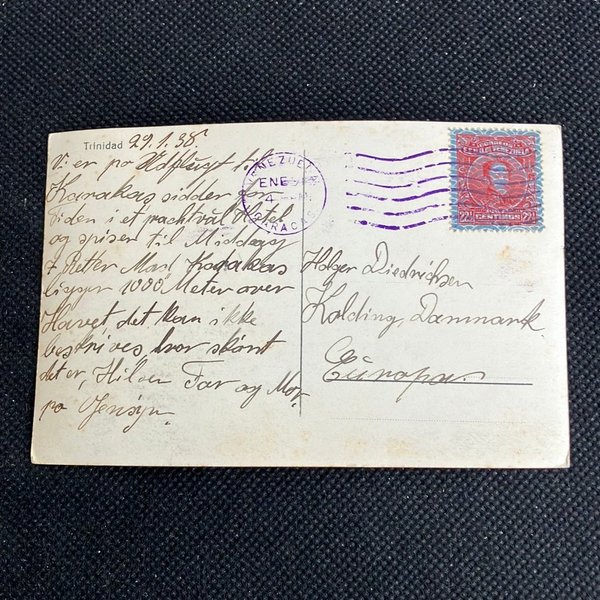 Trinidad 29.1.38
Vi er po Udflugt til
Karakas sidder for
Tiden i et pragtvål Hotel
og spiser til Middag
7 Retter Mad Karakas
ligger 1000 Meter over
Havet det kan ikke
beskrives hvor skønt
det er, Hilsen Far og Mor
po Gensyn.
VENEZUELA
ENE
4
CARACAS
22½ CENTIMOS 22½
Holger Diedrichsen
Kolding, Danmark
Europa.